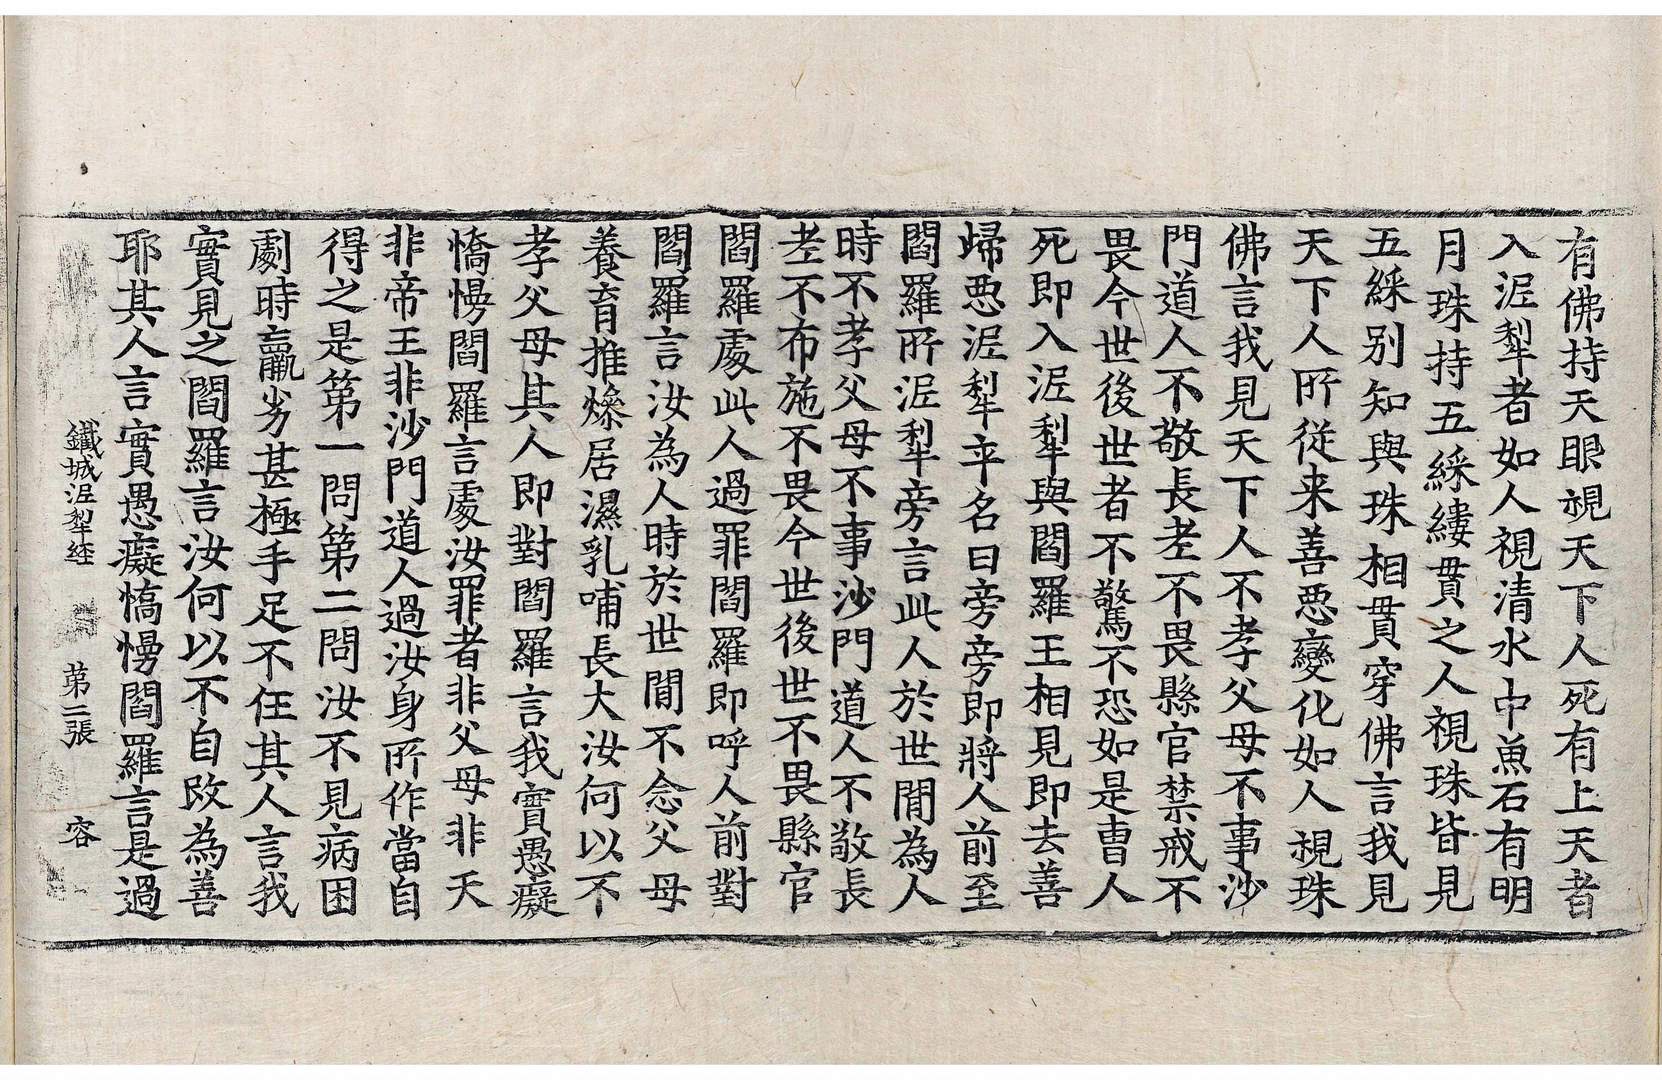 有佛持天眼視天下人死有上天者
入泥犁者如人視清水中魚石有明
月珠持五綵縷貫之人視珠皆見
五綵別知與珠相貫穿佛言我見
天下人所從来善惡變化如人視珠
佛言我見天下人不孝父母不事沙
門道人不敬長孝不畏縣官禁戒不
畏今世後世者不驚不恐如是曺人
死即入泥犁與閻羅王相見即去善
歸惡泥犁卒名曰旁旁即將人前至
閻羅所泥犁旁言此人於世閒為人
時不孝父母不事沙門道人不敬長
孝不布施不畏今世後世不畏縣官
閻羅處此人過罪閻羅即呼人前對
閻羅言汝為人時於世閒不念父母
養育推燥居濕乳哺長大汝何以不
孝父母其人即對閻羅言我實愚癡
憍慢閻羅言處汝罪者非父母非天
非帝王非沙門道人過汝身所作當自
得之是第一問第二問汝不見病困
劇時羸劣甚極手足不任其人言我
實見之閻羅言汝何以不自改為善
耶其人言實愚癡憍慢閻羅言是過
鐵城泥犁経　第二張　容